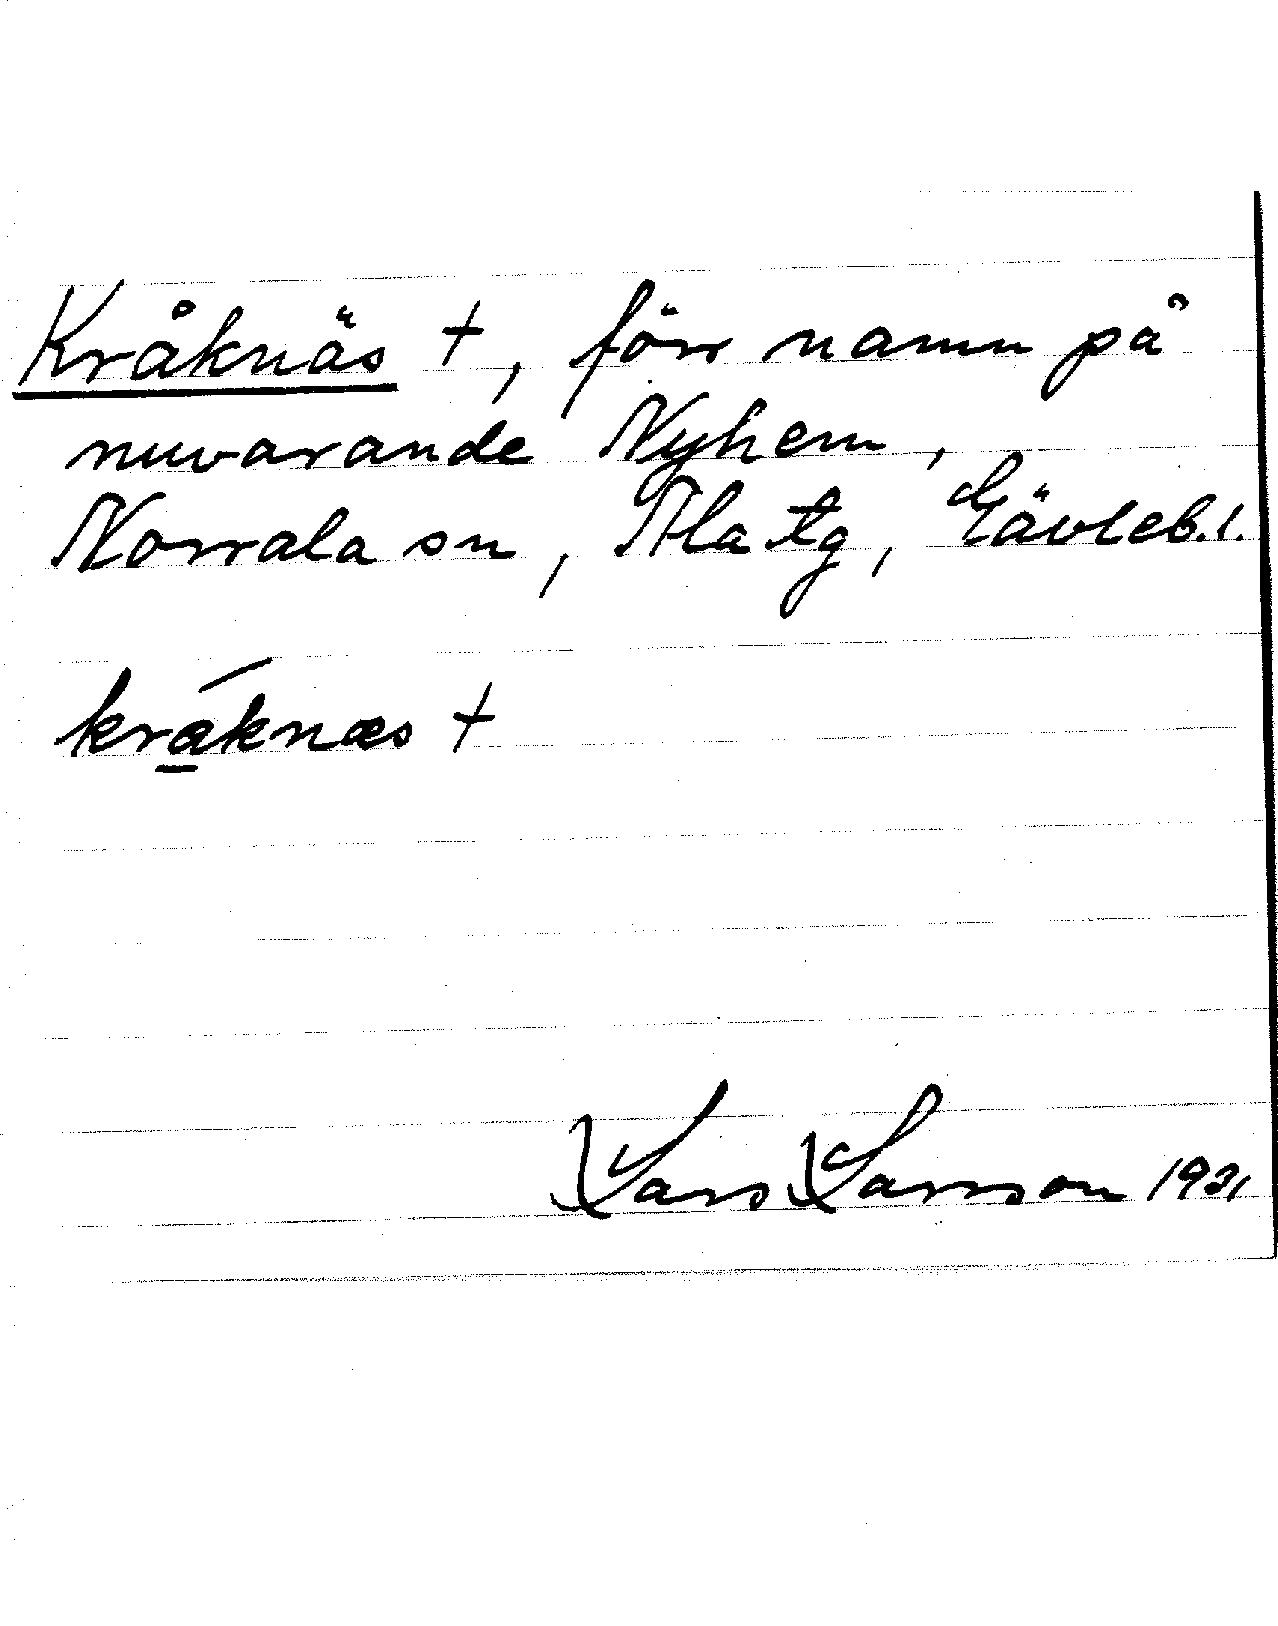 Kråknäs †, förr namn på
nuvarande Nyhem,
Norrala sn, Ala tg, Gävleb. l.
kráknæs †
Lars Larsson 1931